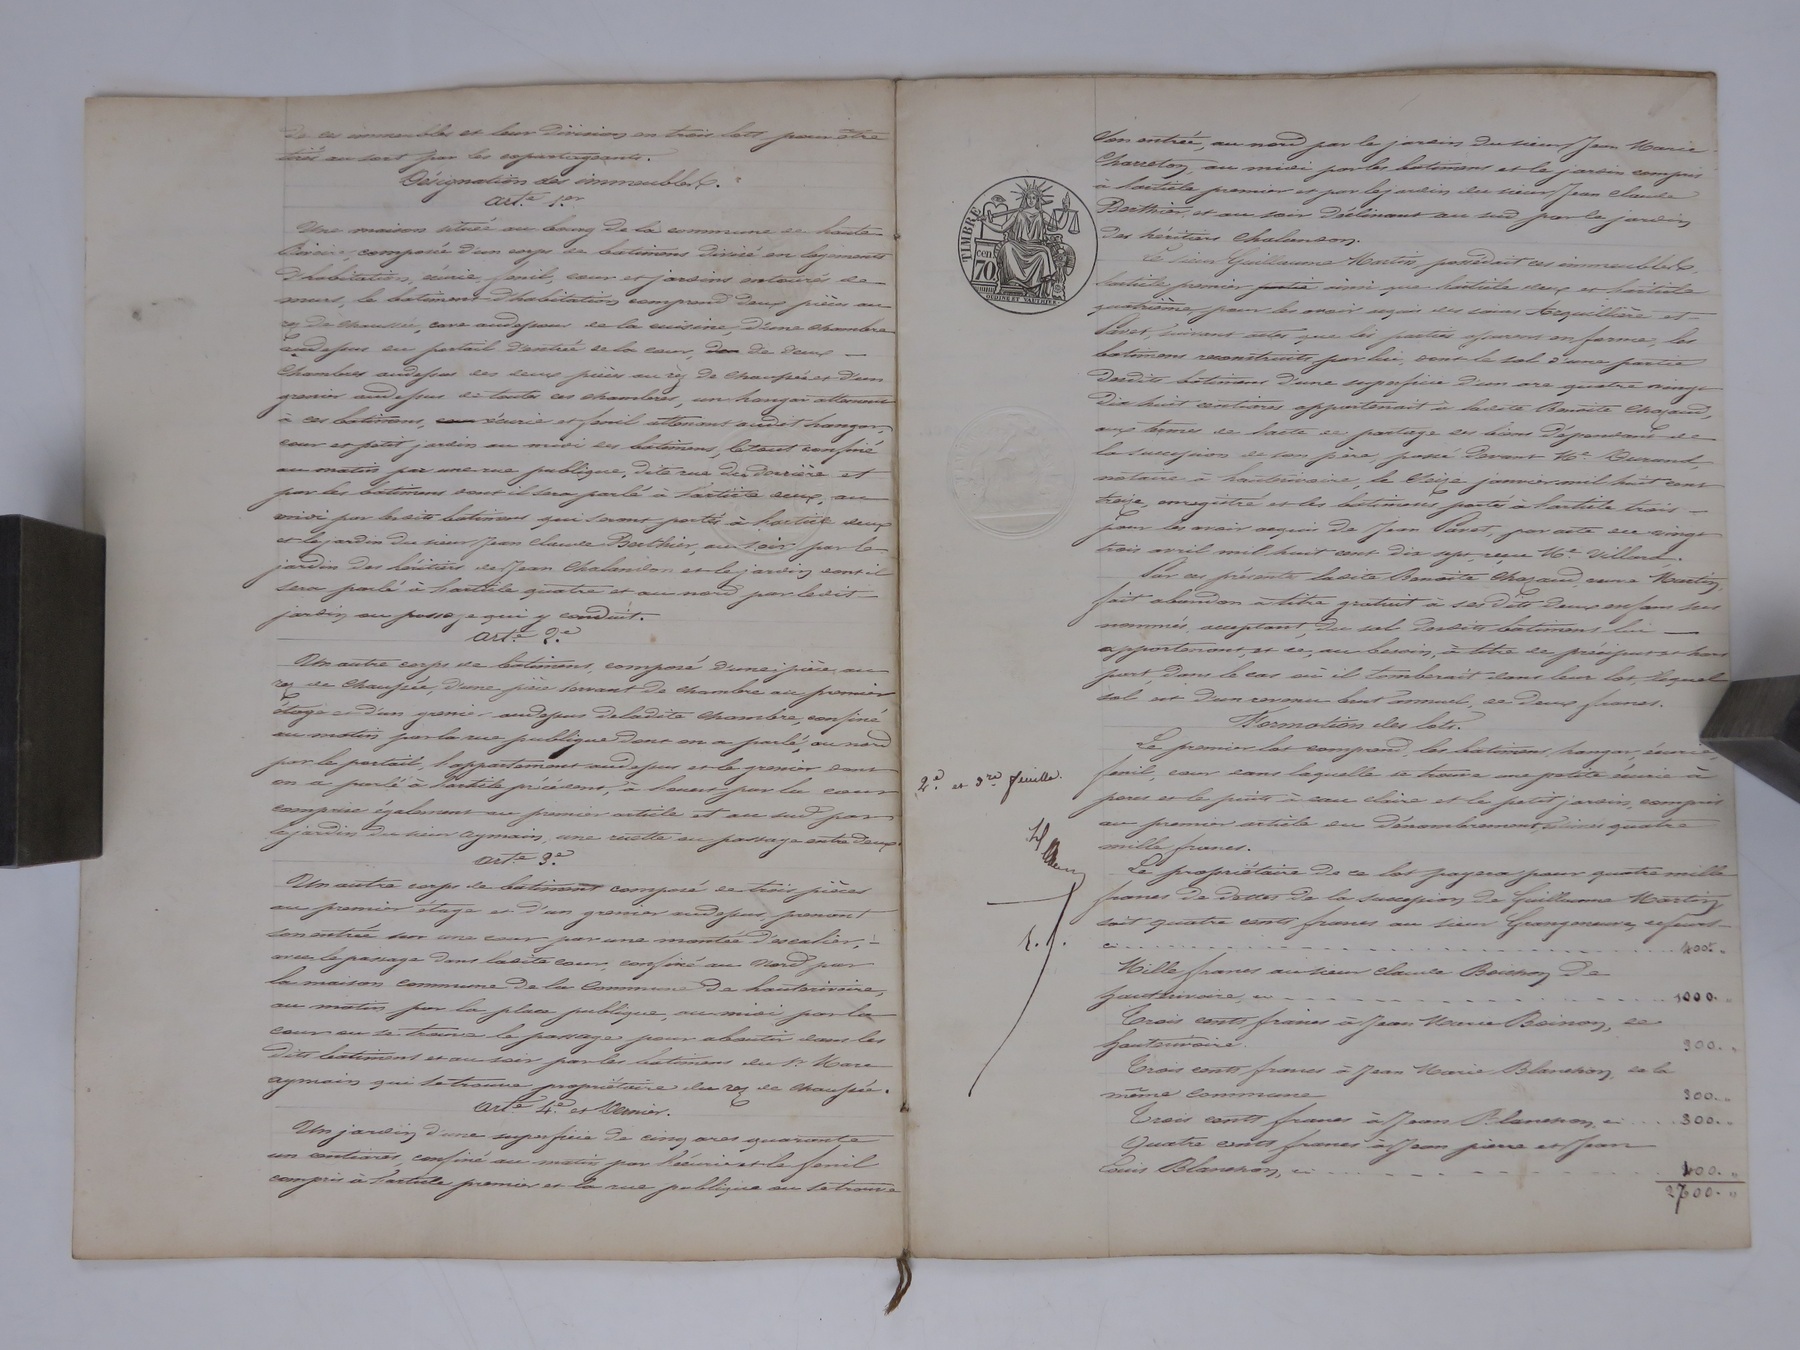 de ces immeubles et leur division en trois lots pour être
tirés au sort par les copartageants.
Désignation des immeubles.
Art.e 1.er
Une maison située au bourg de la commune de haute
Rivoire, composée d'un corps de bâtimens divisé en logements
d'habitation, écurie, fenil, cour et jardins entourés de
murs, le bâtiment d'habitation comprend deux pièces au
rez de chaussée, cave audessous de la cuisine, d'une chambre
audessus du portail d'entrée de la cour, de deux
chambres audessus des deux pièces au rez de chaussée et d'un
grenier audessus de toutes ces chambres, un hangar attenant
à ces bâtimens, écurie et fenil attenant audit hangar,
cour et petit jardin au midi des bâtimens, le tout confiné
au matin par une rue publique, dite rue du derrière et
par les bâtimens dont il sera parlé à l'article deux, au
midi par lesdits bâtimens qui seront portés à l'article deux
et le jardin du sieur Jean Claude Berthier, au soir par le
jardin des héritiers de Jean Chalandon et le jardin dont il
sera parlé à l'article quatre et au nord par ledit
jardin au passage qui y conduit.
Art.e 2.e
Un autre corps de bâtimens, composé d'une pièce au
rez de chaussée, d'une pièce servant de chambre au premier
étage et d'un grenier audessus de ladite chambre, confiné
au matin par la rue publique dont on a parlé, au nord
par le portail, l'appartement audessus et le grenier dont
on a parlé à l'article précédent, à l'ouest par la cour
comprise également au premier article et au sud par
le jardin du sieur Aymain, une ruelle ou passage entre deux.
Art.e 3.e
Un autre corps de bâtiment composé de trois pièces
au premier étage et d'un grenier audessus, prenant
son entrée sur une cour par une montée d'escalier,
avec le passage dans ladite cour, confiné au Nord par
la maison commune de la Commune de hauterivoire,
au matin par la place publique, au midi par la
cour où se trouve le passage pour aboutir dans les
dits bâtimens et au soir par les bâtimens du Sr Marc
Aymain qui se trouve propriétaire du rez de chaussée.
Art.e 4.e et dernier.
Un jardin d'une superficie de cinq ares quarante
un centiares, confiné au matin par l'écurie et le fenil
compris à l'article premier et la rue publique où se trouve
son entrée, au nord par le jardin du sieur Jean Marie
Charreton, au midi par les bâtimens et le jardin compris
à l'article premier et par le jardin du sieur Jean Claude
Berthier, et au soir déclinant au sud par le jardin
des héritiers Chalandon.
TIMBRE
70 cen
OUDINÉ ET VAUTHIER
Le sieur Guillaume Martin possédait ces immeubles,
l'article premier ainsi que l'article deux et l'article
quatrième pour les avoir acquis des sieurs et
Pavet, suivant actes que les parties assurent en forme, les
bâtimens reconstruits par lui, dont le sol d'une partie
desdits bâtimens d'une superficie d'un are quatre vingt
dix huit centiares appartenait à ladite Benoîte Chazaud,
aux termes de l'acte de partage des biens dépendants de
la succession de son père, passé devant Me Durand,
notaire à hauterivoire, le treize janvier mil huit cent
treize, enregistré et les bâtimens portés à l'article trois
pour les avoir acquis de Jean Pavet, par acte du vingt
trois avril mil huit cent dix sept, reçu Me Villard.
Par ces présentes ladite Benoîte Chazaud, veuve Martin,
fait abandon à titre gratuit à ses dits deux enfans sus
nommés, acceptant, du sol desdits bâtimens lui
appartenant, et ce, au besoin, à titre de préciput et hors
part, dans le cas où il tomberait dans leur lot, lequel
sol est d'un revenu brut annuel, de deux francs.
Formation des lots.
Le premier lot comprend, les bâtimens, hangar, écurie,
fenil, cour dans laquelle se trouve une petite écurie à
porcs et le puits à eau claire et le petit jardin, compris
au premier article du dénombrement, quatre
mille francs.
2.e et 3.re feuille.
Le propriétaire de ce lot payera pour quatre mille
francs de dettes de la succession de Guillaume Martin
soit quatre cents francs au sieur Grangeneuve,
ci 400. "
Mille francs au sieur Claude Boisson de
hauterivoire, ci 1000. "
Trois cents francs à Jean Marie Boinon, de
hauterivoire. 300. "
Trois cents francs à Jean Marie Blanchon, de la
même commune 300. "
Trois cents francs à Jean Blanchon, ci 300. "
Quatre cents francs à Jean pierre et Jean
Louis Blanchon, ci 400. "
2700. "